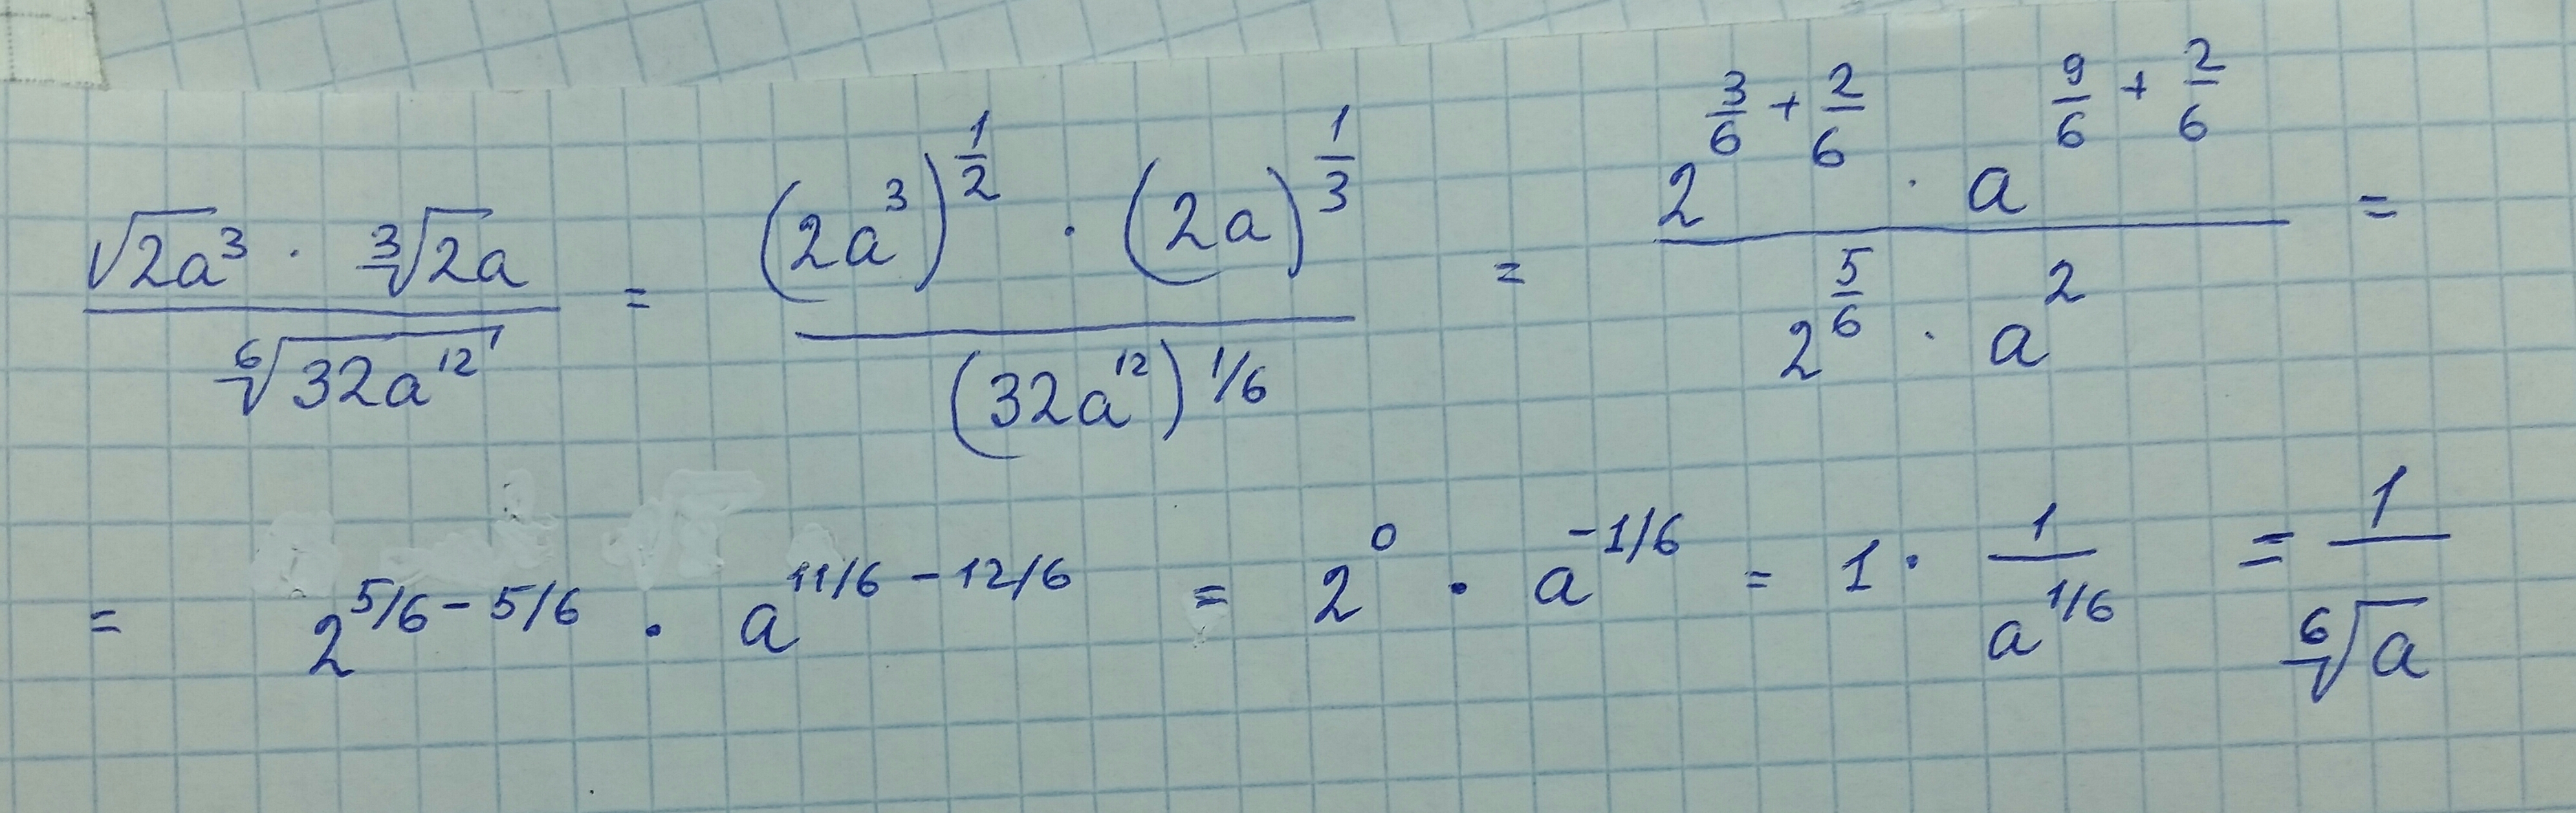 √2a³ · ³√2a / ⁶√32a¹² = (2a³)^(1/2) · (2a)^(1/3) / (32a¹²)^(1/6) = 2^(3/6 + 2/6) · a^(9/6 + 2/6) / 2^(5/6) · a² =
= 2^(5/6 - 5/6) · a^(11/6 - 12/6) = 2⁰ · a^(-1/6) = 1 · 1/a^(1/6) = 1/⁶√a